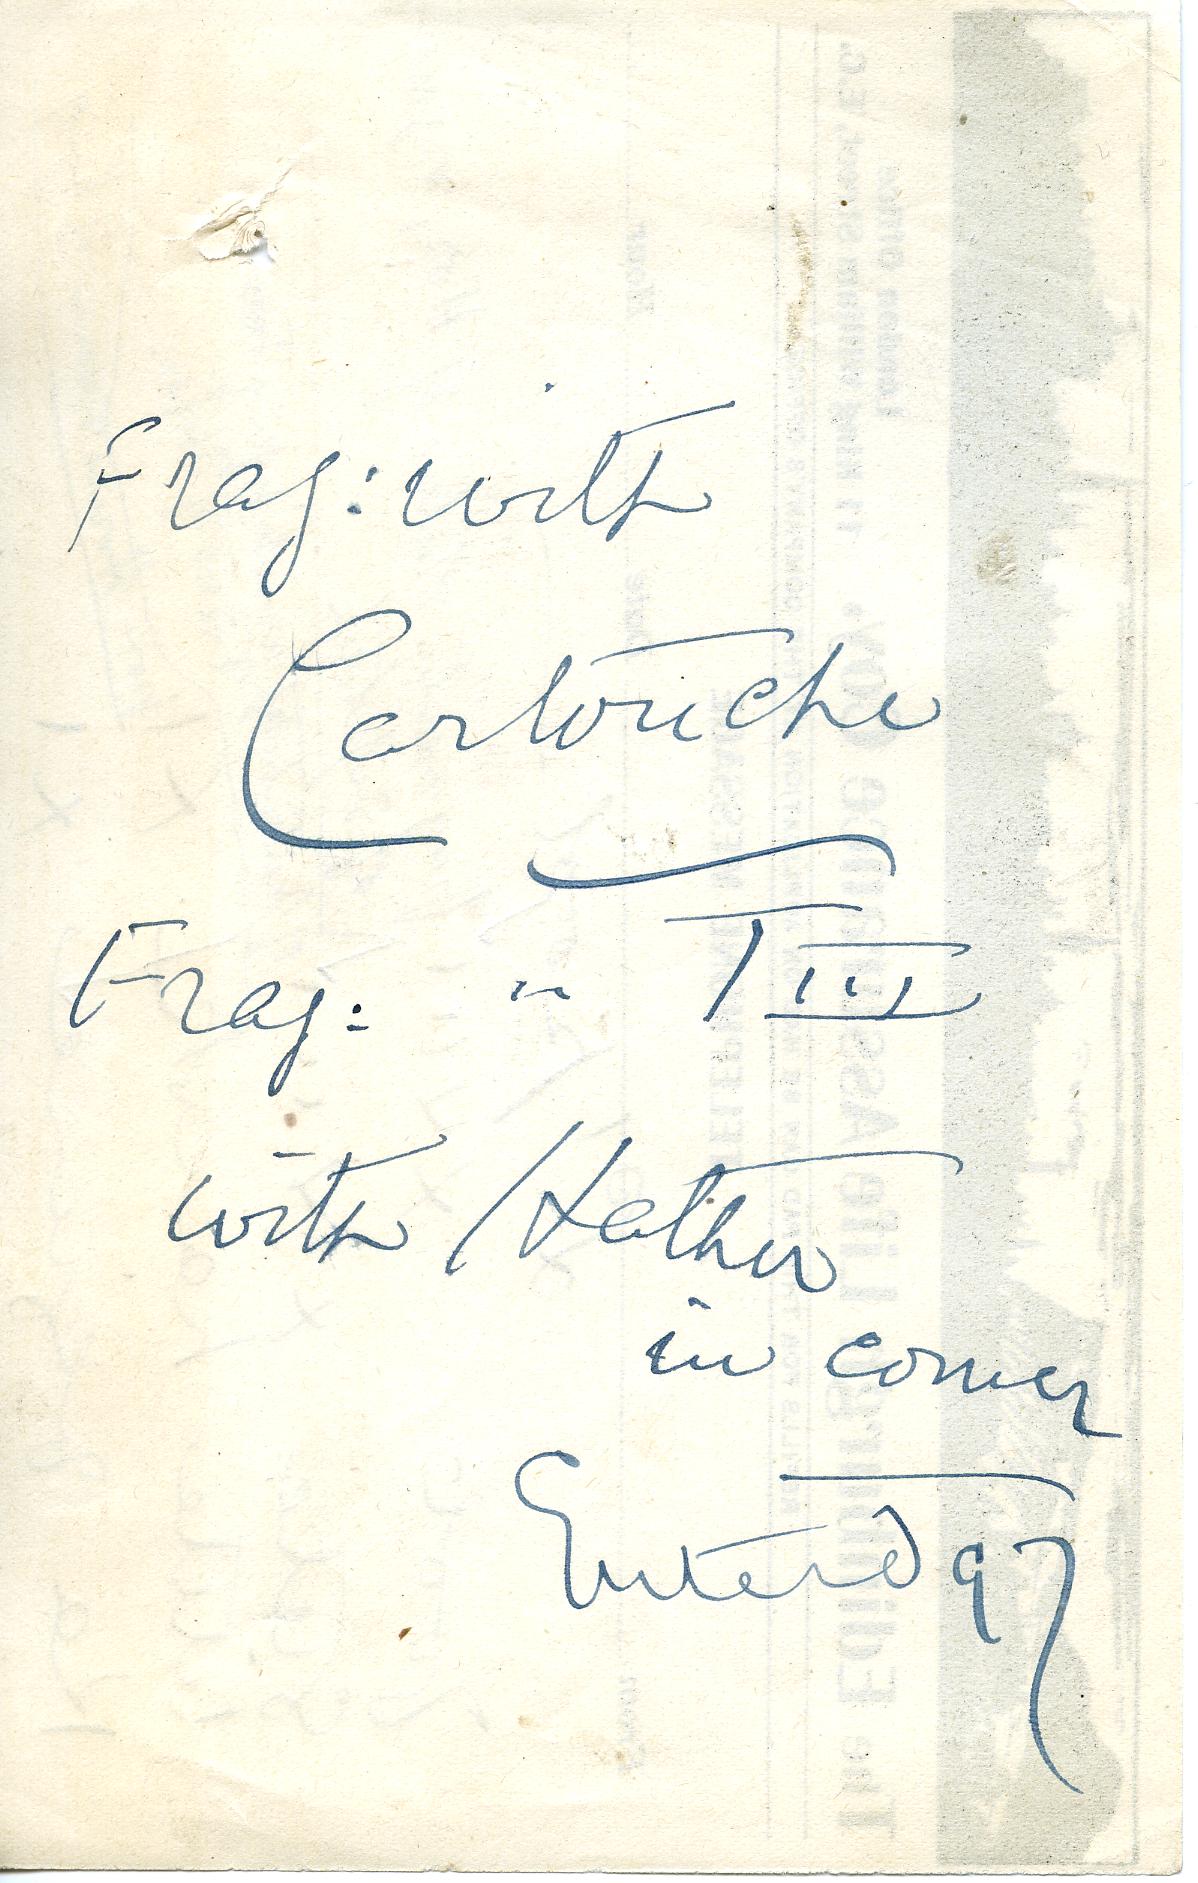 Frag: with
Cartouche
Frag: " T III
with Hathor
in corner
Entered 97